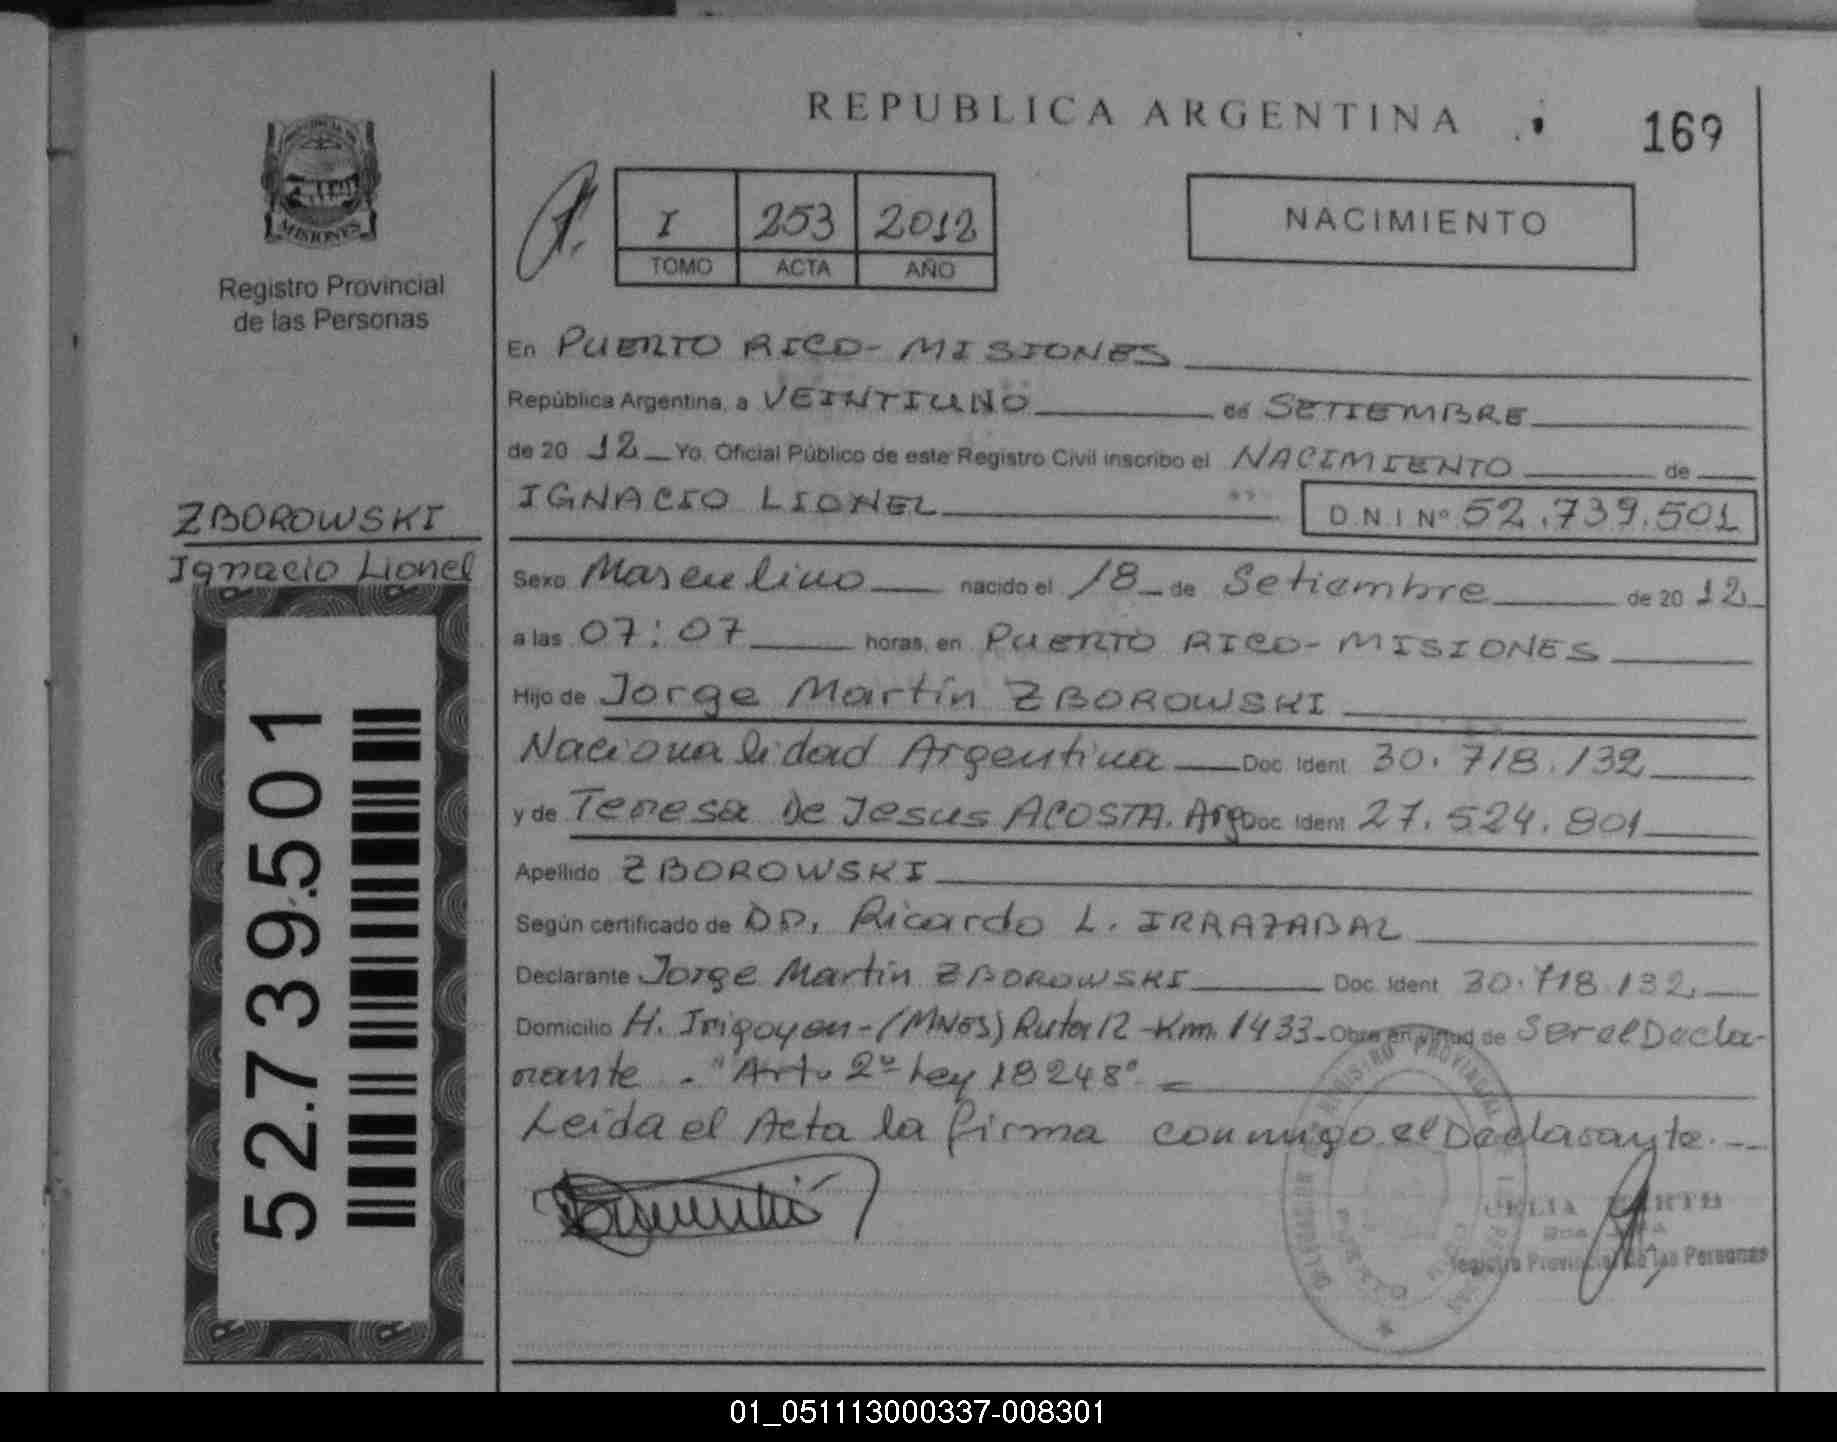 REPUBLICA ARGENTINA
169
MISIONES
Registro Provincial
de las Personas
I 253 2012
TOMO ACTA AÑO
NACIMIENTO
En PUERTO RICO - MISIONES
República Argentina, a VEINTIUNO de SETIEMBRE
de 20 12 Yo, Oficial Público de este Registro Civil inscribo el NACIMIENTO de
IGNACIO LIONEL D.N.I Nº 52.739.501
ZBOROWSKI
Ignacio Lionel
52.739.501
Sexo Masculino nacido el 18 de Setiembre de 20 12
a las 07:07 horas, en PUERTO RICO - MISIONES
Hijo de Jorge Martín ZBOROWSKI
Nacionalidad Argentina Doc. Ident. 30.718.132
y de Teresa De Jesus ACOSTA. Arg Doc. Ident. 27.524.801
Apellido ZBOROWSKI
Según certificado de DD. Ricardo L. IRRAZABAL
Declarante Jorge Martín ZBOROWSKI Doc. Ident. 30.718.132
Domicilio H. Irigoyen - (MNES) Ruta 12 - Km. 1433 - Obra en virtud de Ser el Decla-
rante . "Art. 2º Ley 18248"
Leida el Acta la firma conmigo el Declarante.
Registro Provincial de las Personas
01_051113000337-008301